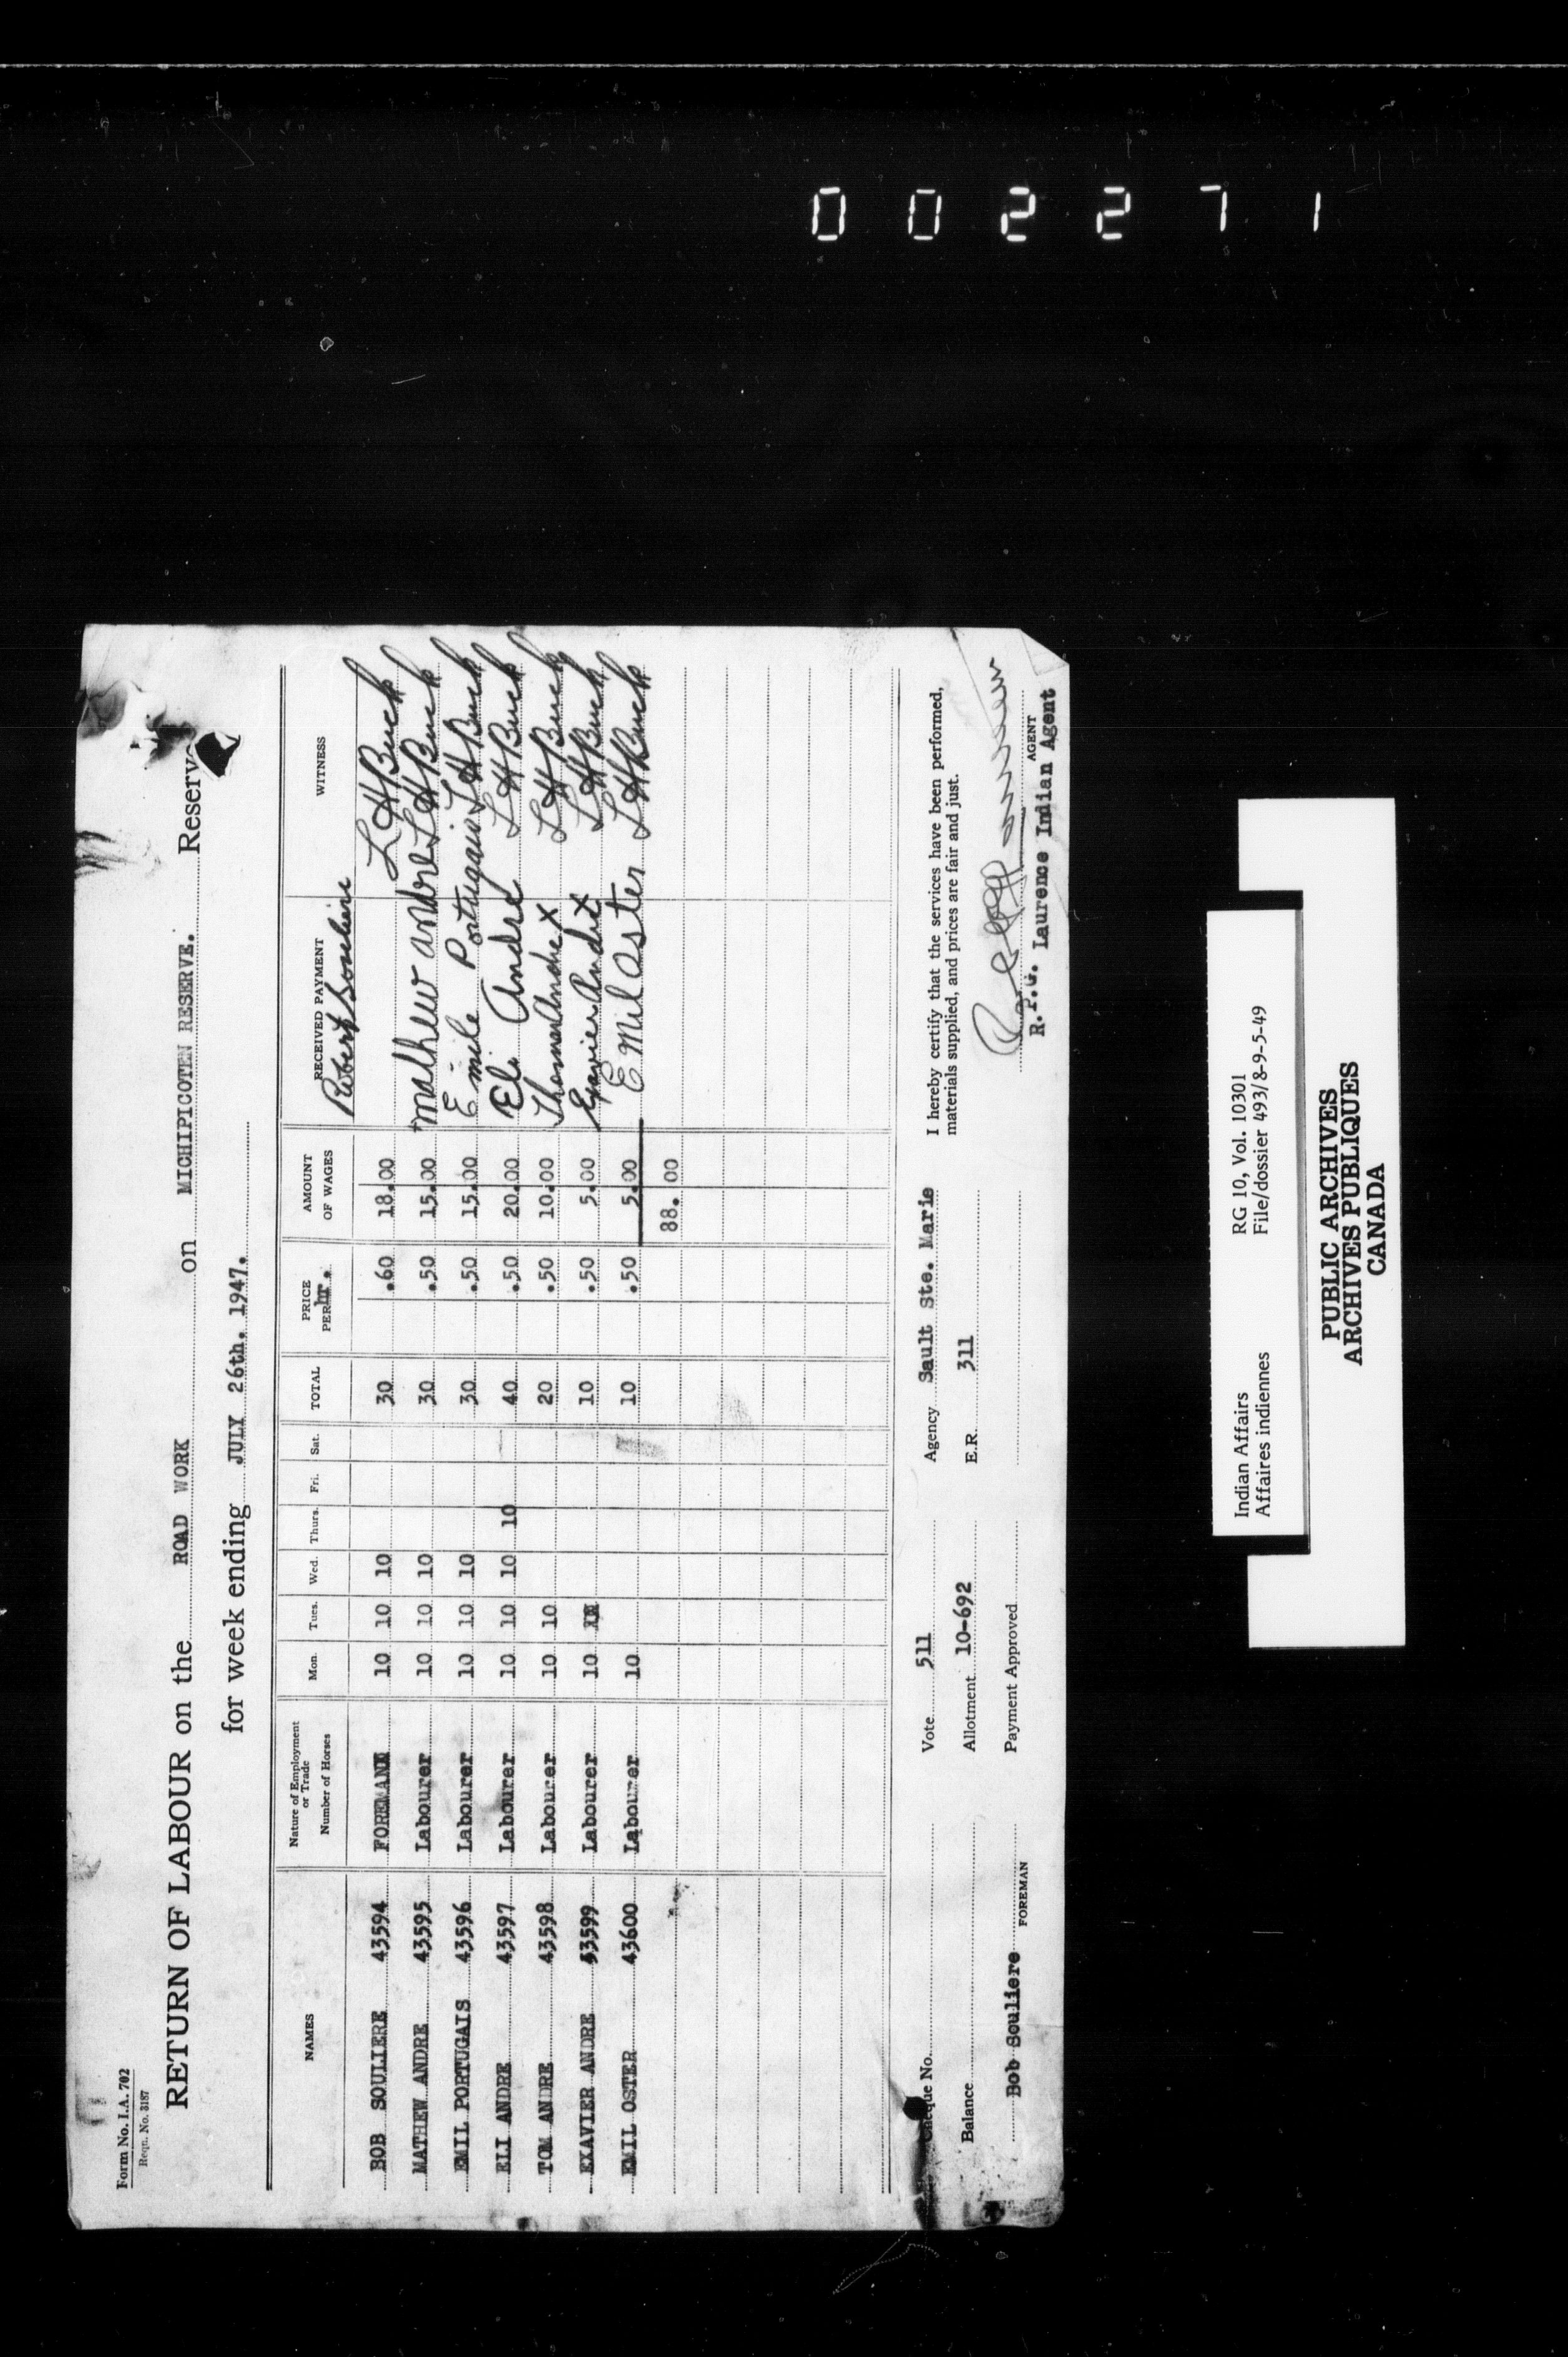 002271
Form No. I.A. 702
Reqn. No. 3187
RETURN OF LABOUR on the ROAD WORK on MICHIPICOTEN RESERVE. Reserve
for week ending JULY 26th. 1947.
NAMES Nature of Employment or Trade Number of Horses Mon. Tues. Wed. Thurs. Fri. Sat. TOTAL PRICE PER hr. AMOUNT OF WAGES RECEIVED PAYMENT WITNESS
BOB SOULIERE 43594 FOREMANN 10 10 10 30 .60 18.00 Robert Souliere L H Buck
MATHEW ANDRE 43595 Labourer 10 10 10 30 .50 15.00 mathew andre L H Buck
EMIL PORTUGAIS 43596 Labourer 10 10 10 30 .50 15.00 Emile Portugais L H Buck
ELI ANDRE 43597 Labourer 10 10 10 10 40 .50 20.00 Eli Andre L H Buck
TOM ANDRE 43598 Labourer 10 10 20 .50 10.00 Thomas Andre X L H Buck
EXAVIER ANDRE 43599 Labourer 10 10 .50 5.00 Exavier Andre X L H Buck
EMIL OSTER 43600 Labourer 10 10 .50 5.00 Emil Oster L H Buck
88.00
Cheque No. Vote 511 Agency Sault Ste. Marie
I hereby certify that the services have been performed,
materials supplied, and prices are fair and just.
Balance Allotment 10-692 E.R. 311
Bob Souliere FOREMAN Payment Approved
AGENT
R.P.G. Laurence Indian Agent
Indian Affairs RG 10, Vol. 10301
Affaires indiennes File/dossier 493/8-9-5-49
PUBLIC ARCHIVES
ARCHIVES PUBLIQUES
CANADA